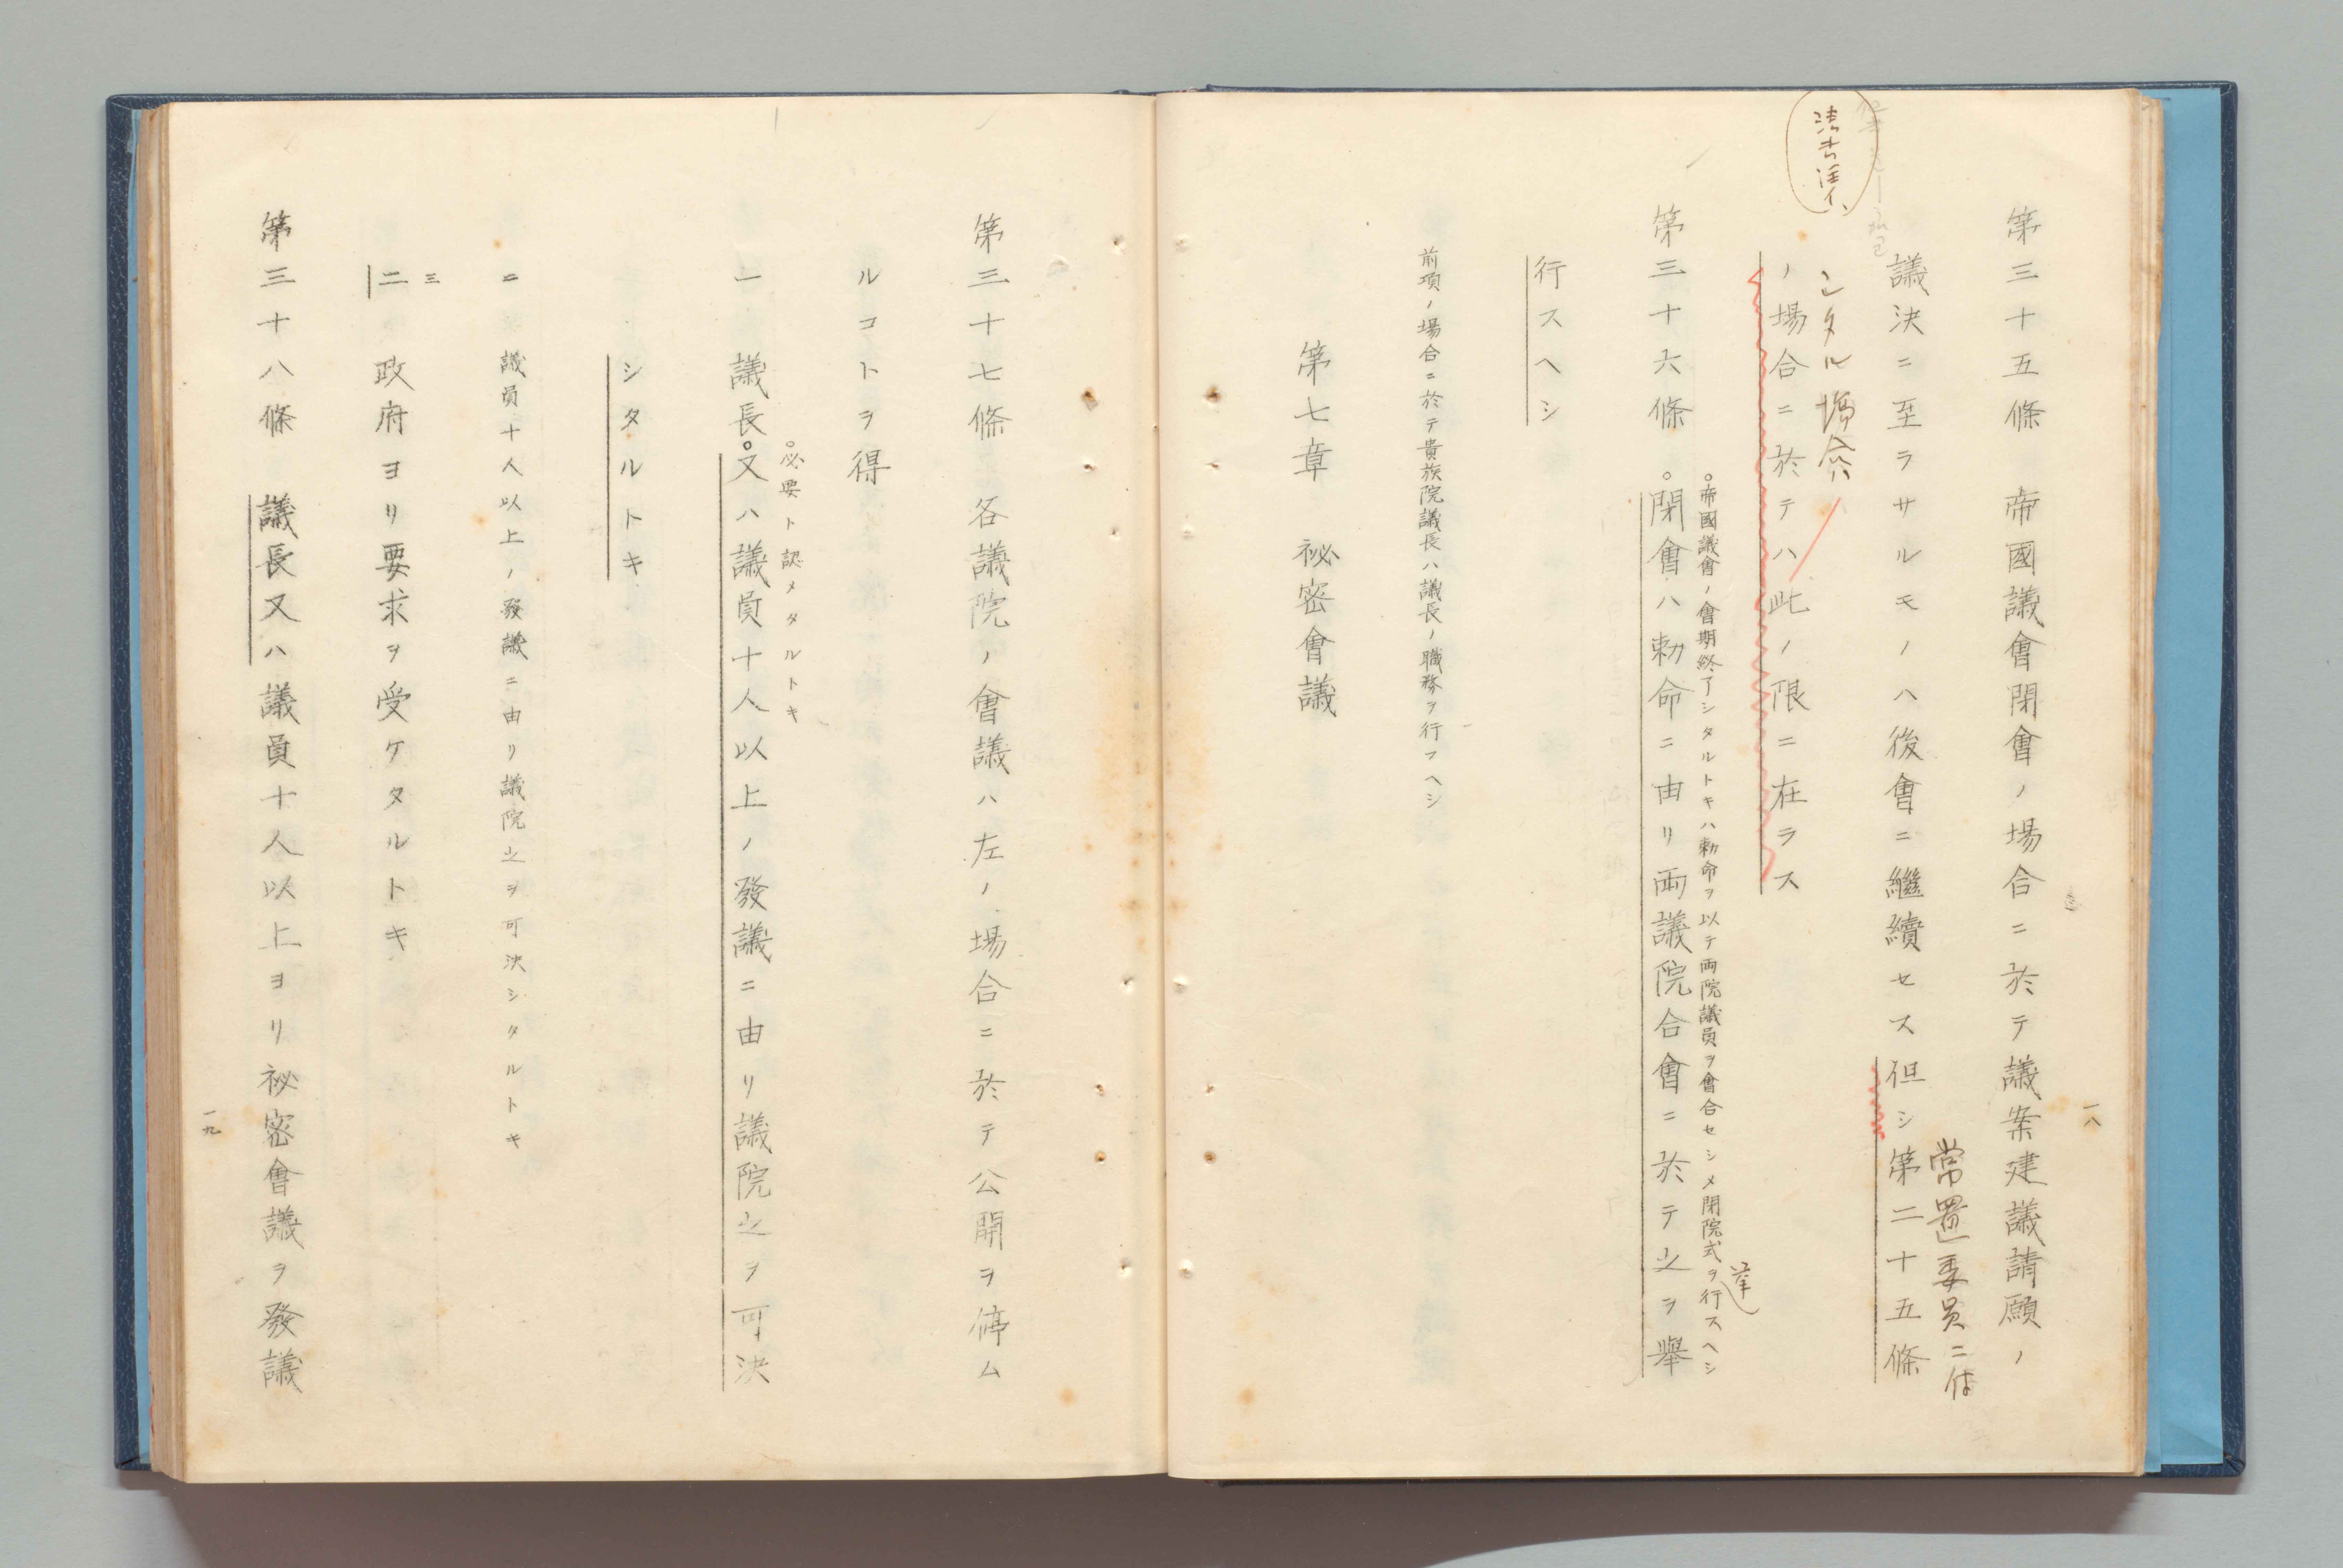 一八
第三十五條 帝國議會閉會ノ場合ニ於テ議案建議請願ノ
常置委員ニ付
議決ニ至ラサルモノハ後會ニ繼續セス但シ第二十五條
シタル場合ハ
ノ場合ニ於テハ此ノ限ニ在ラス
。帝國議會ノ會期終了シタルトキハ勅命ヲ以テ両院議員ヲ會合セシメ閉院式ヲ行スヘシ
擧
第三十六條 。閉會ハ勅命ニ由リ両議院合會ニ於テ之ヲ擧
行スヘシ
前項ノ場合ニ於テ貴族院議長ハ議長ノ職務ヲ行フヘシ
第七章 祕密會議
第三十七條 各議院ノ會議ハ左ノ場合ニ於テ公開ヲ停ム
ルコトヲ得
。必要ト認メタルトキ
一 議長。又ハ議員十人以上ノ發議ニ由リ議院之ヲ可決
シタルトキ
二 議員十人以上ノ發議ニ由リ議院之ヲ可決シタルトキ
三
二 政府ヨリ要求ヲ受ケタルトキ
第三十八條 議長又ハ議員十人以上ヨリ祕密會議ヲ發議
一九